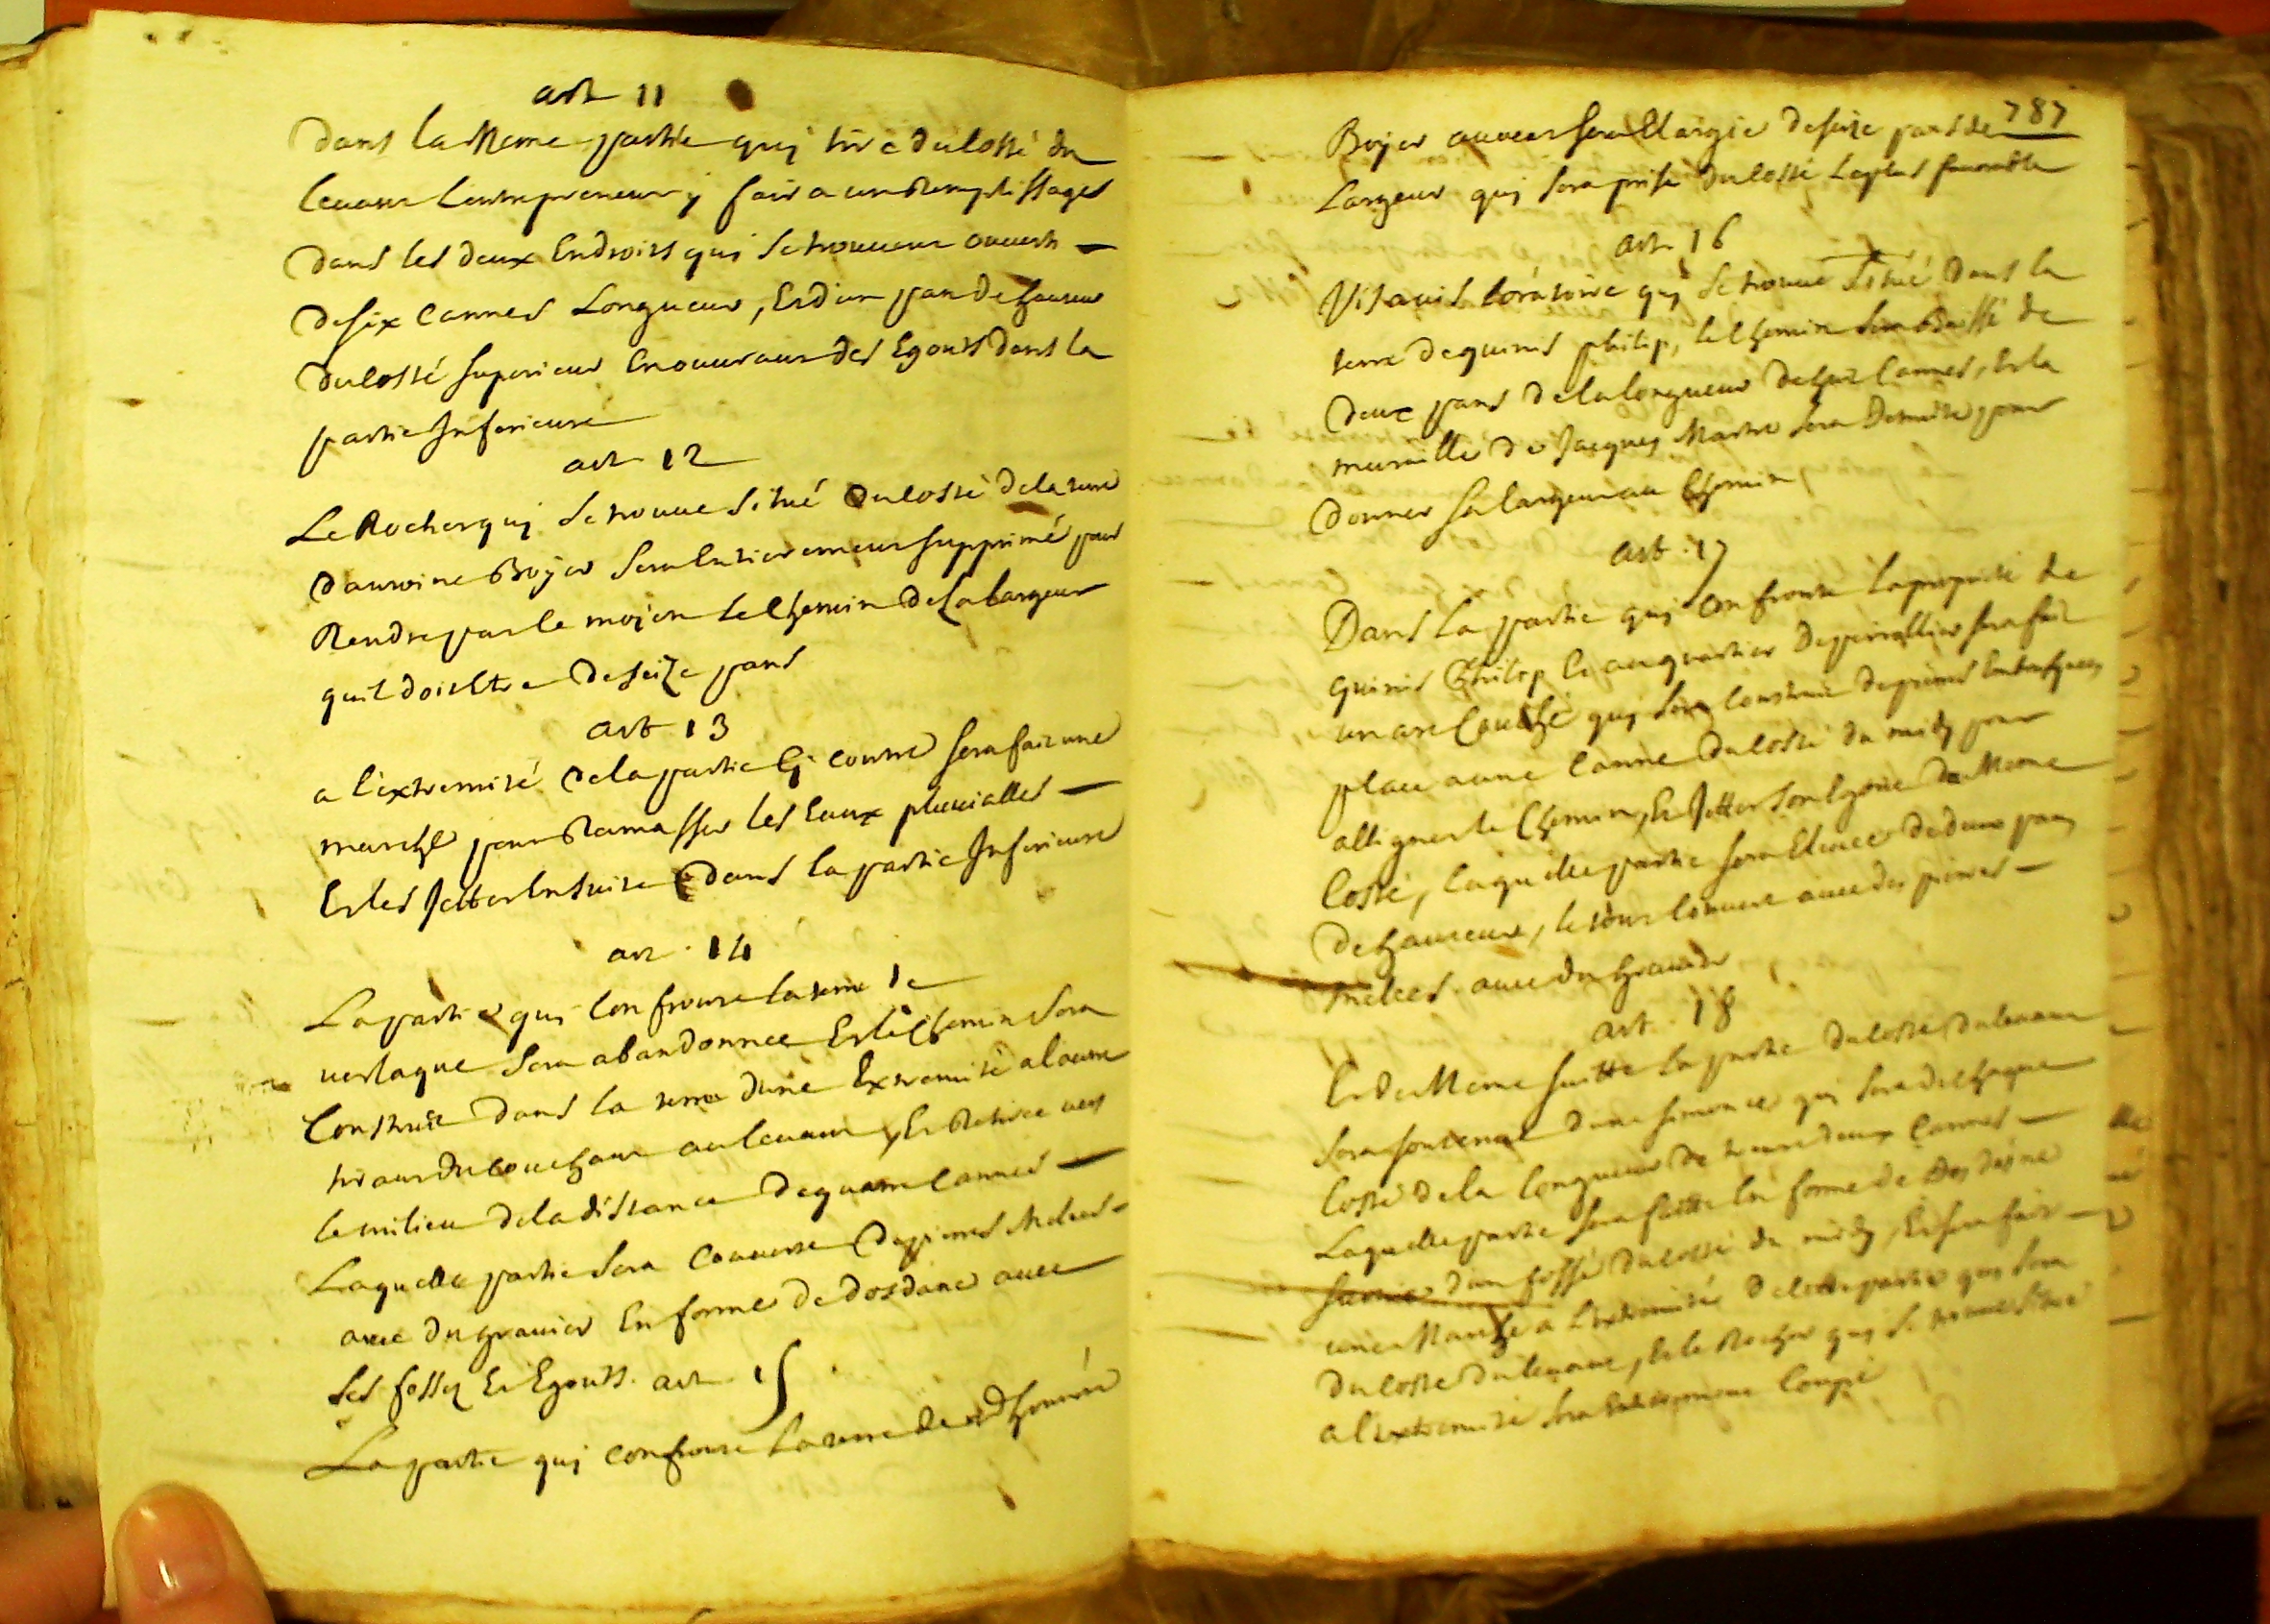 art 11
Dans la Meme partie quj tire du costé du
levant lentrepreneur y faira un Remplissages
dans les deux Endroits quj se trouvent ouverts
de six Cannes Longueur, Et d'un pan de hauteur
du costé superieur En ouvrant des Egouts dans la
partie Inferieure
art 12
Le Rocher quj se trouve situé du costé de la terre
dantoine Boyer sera Entierement supprimé pour
Rendre par le moyen le Chemin de sa largeur
quil doit Etre de seize pans
art 13
a l'extremité de la partie Cy contre sera fait une
marche pour Ramasser les Eaux pluvialles
Et les Jetter Ensuite dans la partie Inferieure
art. 14
La partie quj Confronte la terre de
verlaque sera abandonnée Et le Chemin sera
Construit dans la terre d'une Extremité a lautre
tirant du couchant au levant, Et Retirée vers
le milieu de la distance de quatre Cannes
Laquelle partie sera Couverte de pierres Melees
avec du gravier En forme de dos dane avec
ses fossez Et Egouts. art. 15
La partie quj confronte la terre de
787
Boyer auvert sera Elargie de seize pans de
Largeur quj sera prise du costé Le plus favorable
art. 16
Vis avis l'oratoire quj se trouve situé dans la
terre de quinis philip, le Chemin sera Baissé de
deux pans de la longueur de huit Cannes, Et la
muraille de Jacques Martre sera Demolie pour
donner sa largeur au Chemin
art. 17
Dans la partie quj Confronte la proprieté de
quinis Philip le au quartier de peirallier sera fait
un arc Couché quj sera Construit de pierres
place a une Canne du costé du midy pour
alligner le Chemin, Et Jetter son Egout du Meme
Costé, laquelle partie sera Elevée de deux pans
de hauteur, le tout Couvert avec des pierres
melees avec du gravier
art. 18
Et de Meme suitte la partie du costé du levant
sera soutenue dune simonce quj sera de chaque
Costé de la longueur de trente deux Cannes
Laquelle partie sera faitte En forme de Dos dasne
suivie d'un fossé du costé du midy, Et sera fait
une Marche a l'extremité de cette partie quj sera
du costé du levant, Et le Rocher quj se trouve situé
a l'extremité sera Entierement Coupé